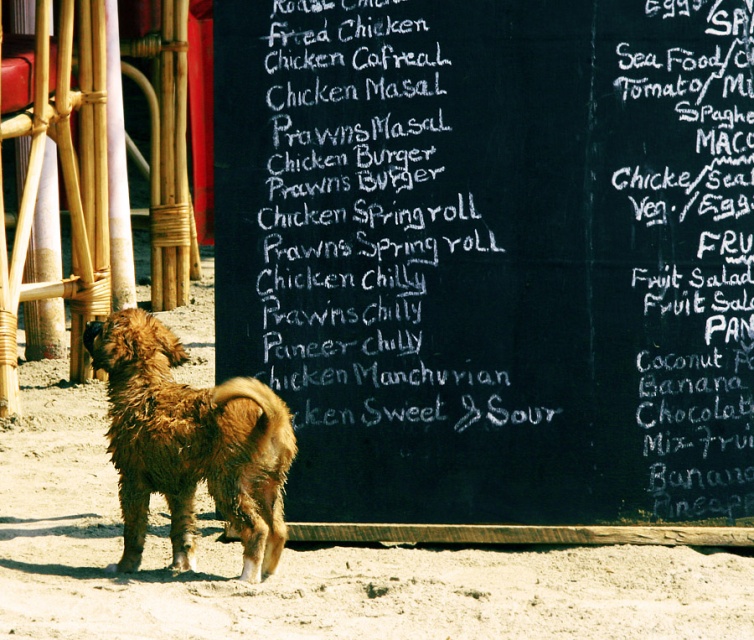 Roast Chicken
Fried Chicken
Chicken Cafreal
Chicken Masal
Prawns Masal
Chicken Burger
Prawns Burger
Chicken Spring roll
Prawns Spring roll
Chicken Chilly
Prawins chilly
Paneer chilly
Chicken Manchurian
cken Sweet & Sour
Eggs
SP
Sea Food/C
Tomato/Mi
Spaghe
MACC
Chicke/Sea
Veg./Eggs
FRU
Fruit Salad
Fruit Sal
PAN
Coconut P
Banana
Chocolat
Mix-Frui
Banana
Pineap